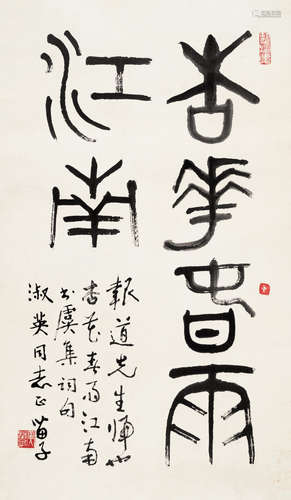 杏華春雨
江南
報道先生歸也
杏花春雨江南
書虞集詞句
淑英同志正 苗子